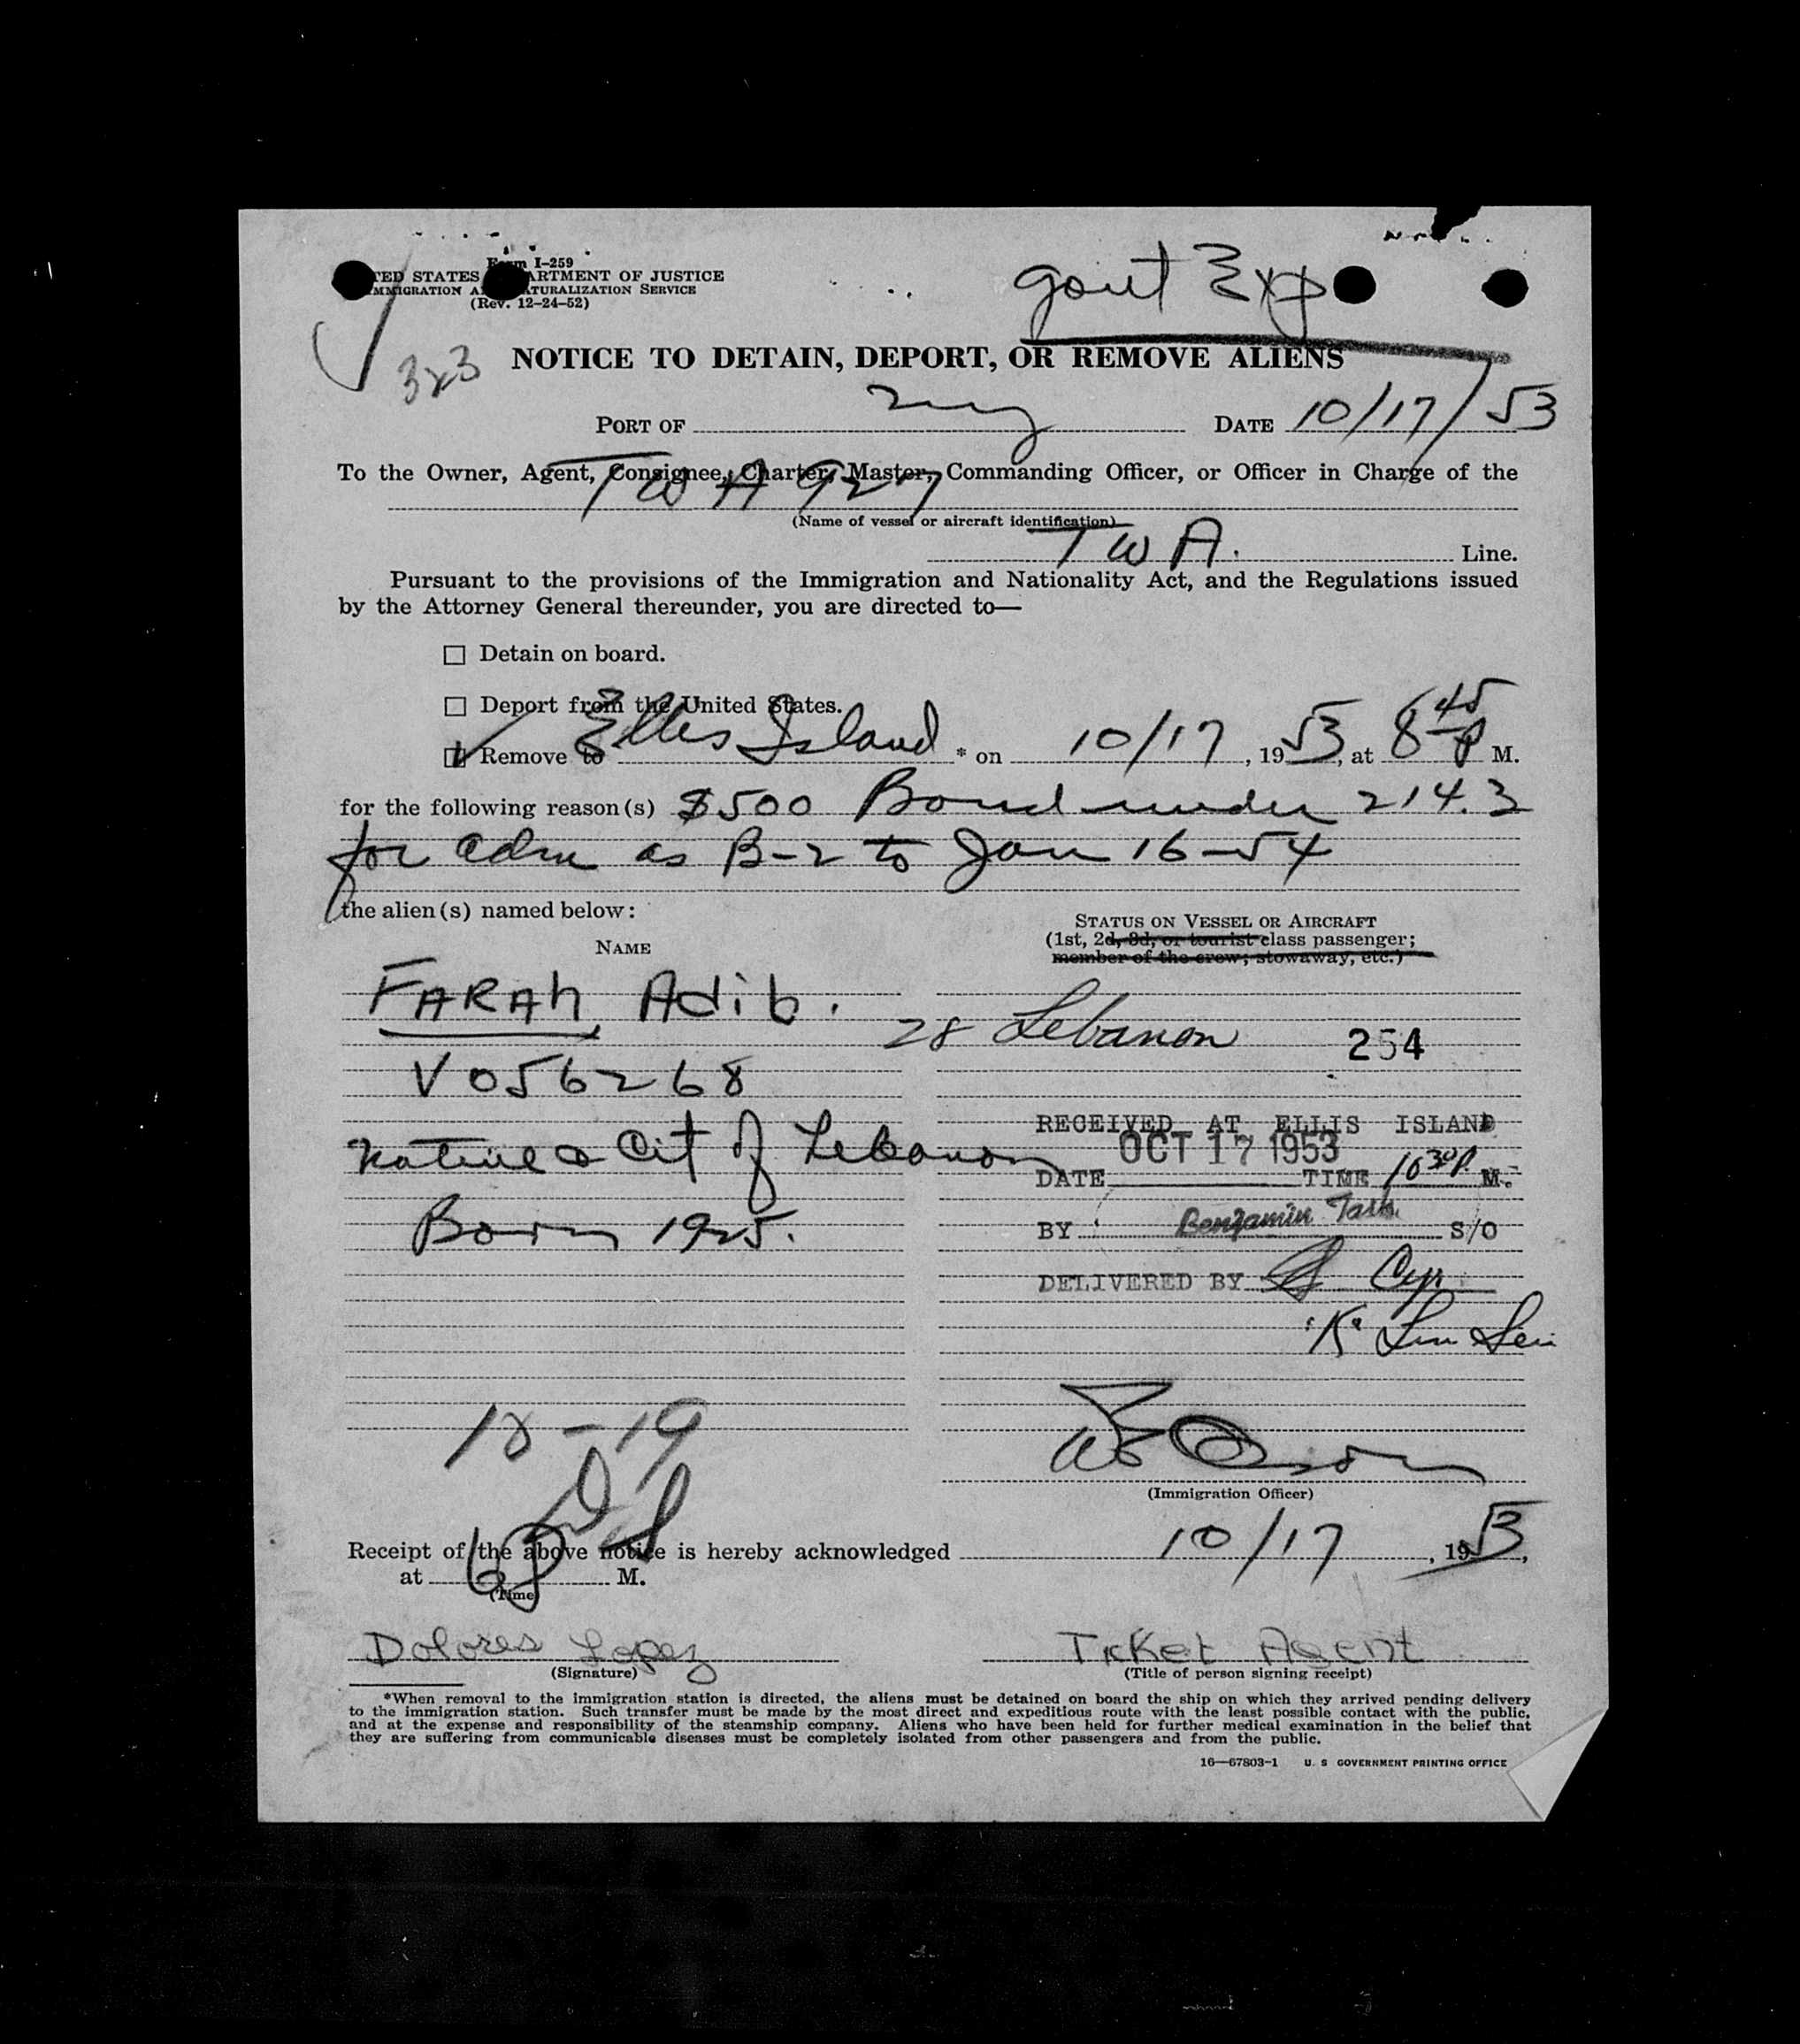 Form I-259
UNITED STATES DEPARTMENT OF JUSTICE
IMMIGRATION AND NATURALIZATION SERVICE
(Rev. 12-24-52)
govt Exp
323
NOTICE TO DETAIN, DEPORT, OR REMOVE ALIENS
PORT OF NY DATE 10/17/53
To the Owner, Agent, Consignee, Charter, Master, Commanding Officer, or Officer in Charge of the
TWA 927
(Name of vessel or aircraft identification)
TWA. Line.
Pursuant to the provisions of the Immigration and Nationality Act, and the Regulations issued
by the Attorney General thereunder, you are directed to—
☐ Detain on board.
☐ Deport from the United States.
☑ Remove to Ellis Island * on 10/17, 1953, at 8 45 P M.
for the following reason(s) $500 Bond under 214.3
for adm as B-2 to Jan 16-54
the alien(s) named below:
NAME
STATUS ON VESSEL OR AIRCRAFT
(1st, 2d, 3d, or tourist class passenger;
member of the crew; stowaway, etc.)
FARAH, Adib.
28 Lebanon 254
V056268
native & Cit of Lebanon
Born 1925.
RECEIVED AT ELLIS ISLAND
DATE OCT 17 1953 TIME 10 30 P. M.
BY Benjamin S/O
DELIVERED BY Cyr
"K"
10-19
(Immigration Officer)
Receipt of the above notice is hereby acknowledged 10/17, 1953,
at M.
(Time)
Dolores Lopez Ticket Agent
(Signature) (Title of person signing receipt)
*When removal to the immigration station is directed, the aliens must be detained on board the ship on which they arrived pending delivery
to the immigration station. Such transfer must be made by the most direct and expeditious route with the least possible contact with the public,
and at the expense and responsibility of the steamship company. Aliens who have been held for further medical examination in the belief that
they are suffering from communicable diseases must be completely isolated from other passengers and from the public.
16—67803-1 U. S GOVERNMENT PRINTING OFFICE